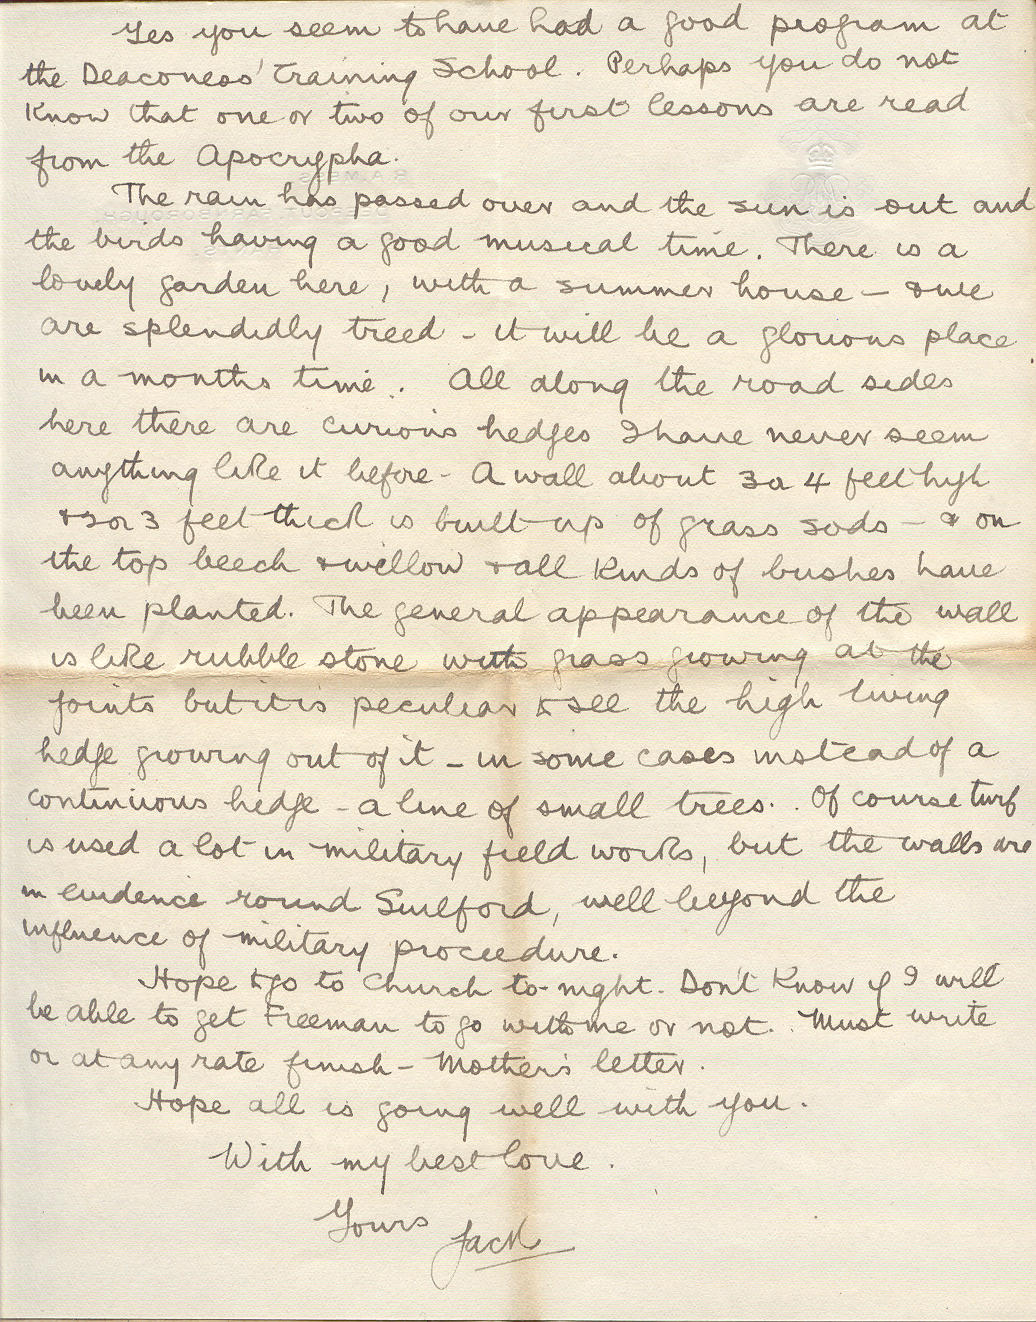 Yes you seem to have had a good program at
the Deaconess' Training School. Perhaps you do not
Know that one or two of our first lessons are read
from the Apocrypha.
The rain has passed over and the sun is out and
the birds having a good musical time. There is a
lovely garden here, with a summer house – & we
are splendidly treed – it will be a glorious place
in a months time. All along the road sides
here there are curious hedges I have never seem
anything like it before – A wall about 3 a 4 feet high
& 2 or 3 feet thick is built up of grass sods – & on
the top beech & willow & all kinds of bushes have
been planted. The general appearance of the wall
is like rubble stone with grass growing at the
joints but it is peculiar to see the high living
hedge growing out of it – in some cases instead of a
continuous hedge – a line of small trees. Of course turf
is used a lot in military field works, but the walls are
in evidence round Guilford, well beyond the
influence of military proceedure.
Hope to go to Church to-night. Don't Know if I will
be able to get Freeman to go with me or not. Must write
or at any rate finish – Mother's letter.
Hope all is going well with you.
With my best love.
Yours Jack